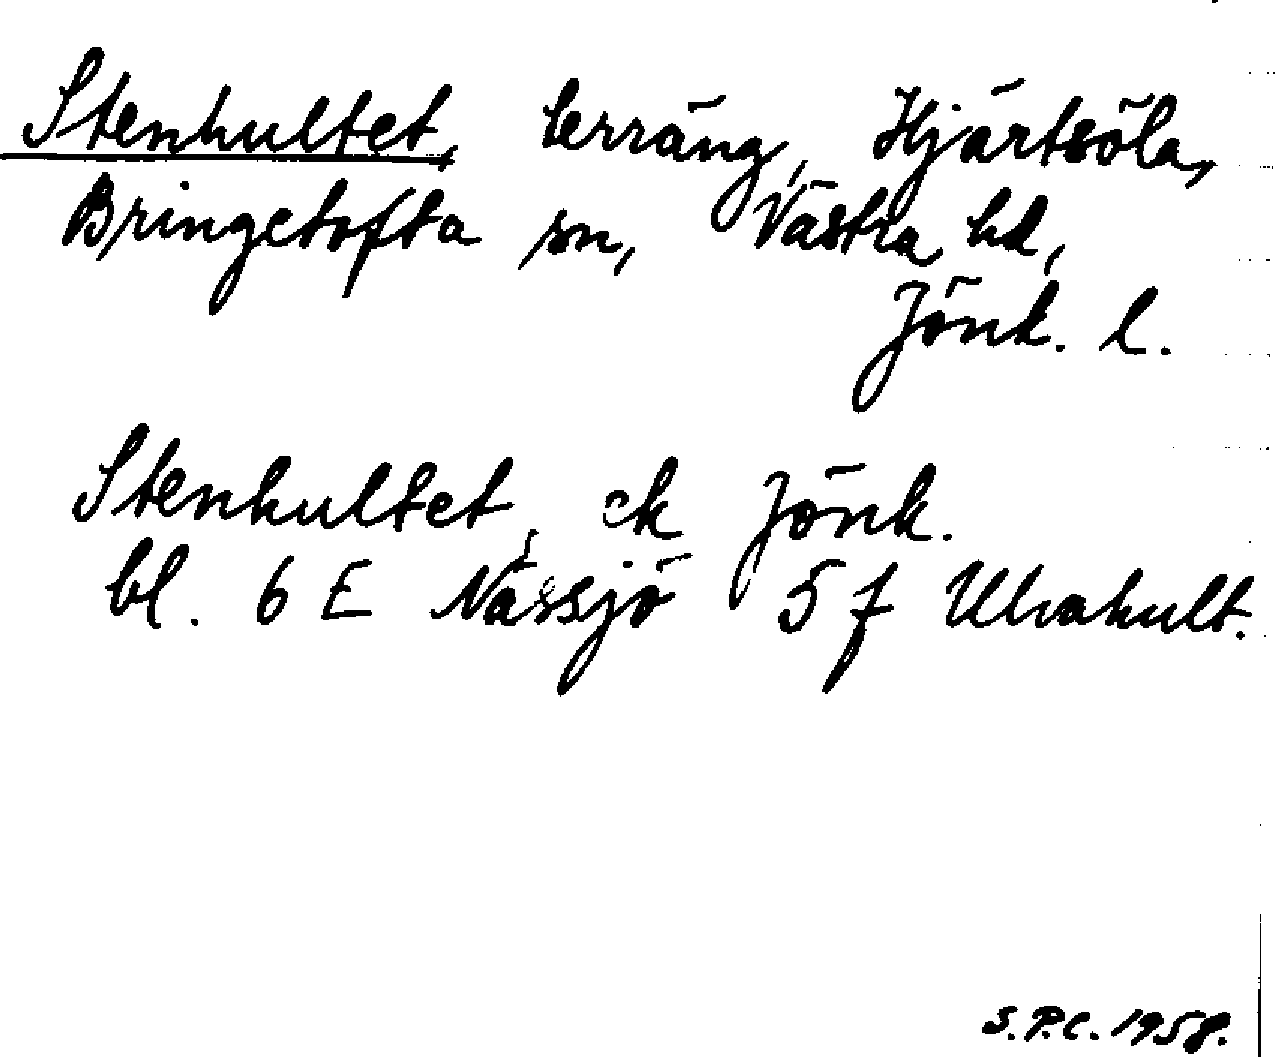 Stenhultet, terräng, Hjärtsöla,
Bringetofta sn, Västra hd,
Jönk. l.
Stenhultet, ek Jönk.
bl. 6 E Nässjö 5 f Ulvahult.
S.P.C. 1958.